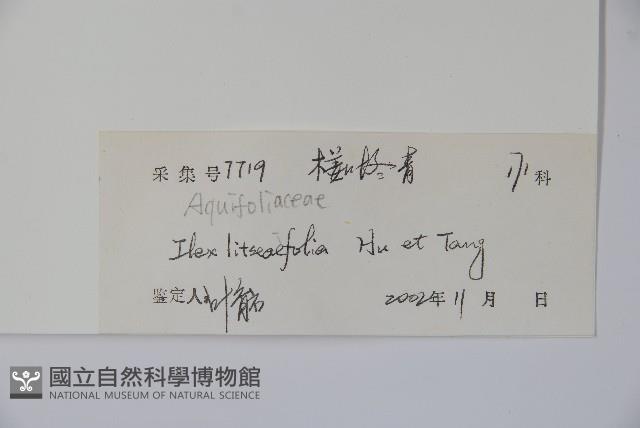 采集号7719 木姜冬青 科
Aquifoliaceae
Ilex litseaefolia Hu et Tang
鉴定人 2002年11月 日
國立自然科學博物館
NATIONAL MUSEUM OF NATURAL SCIENCE